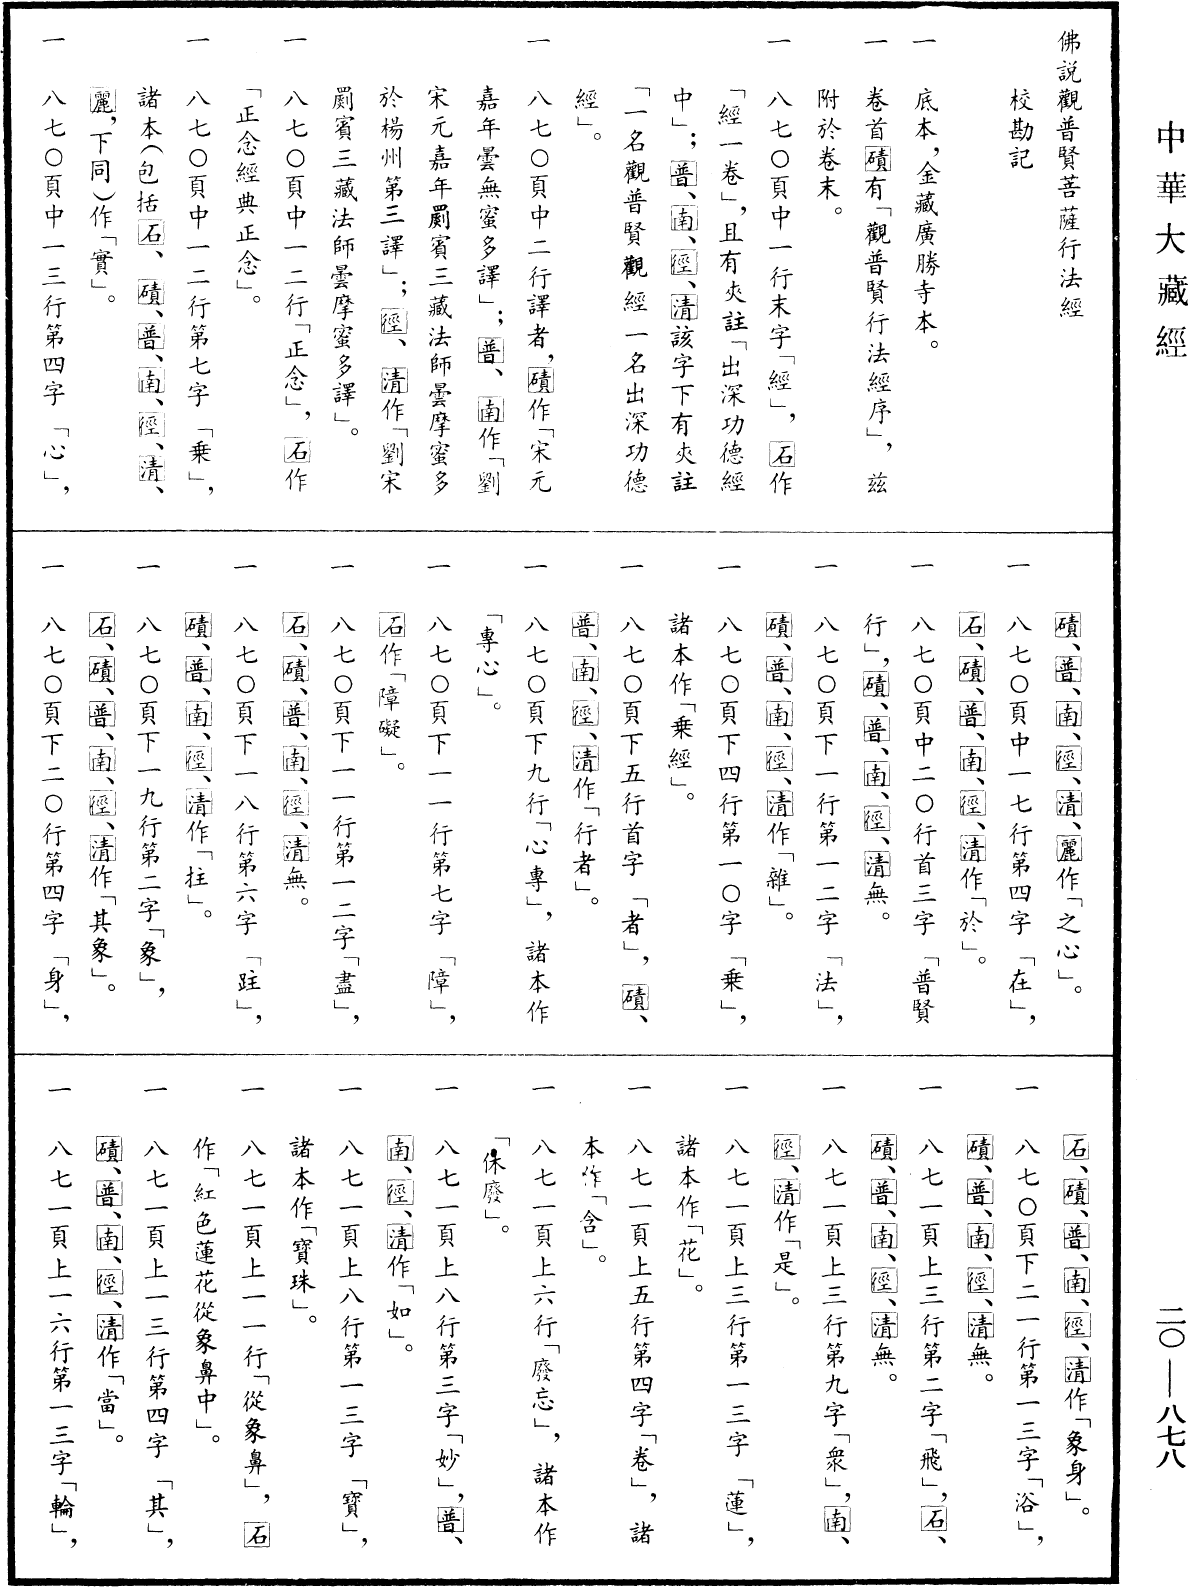 中華大藏經
佛説觀普賢菩薩行法經
校勘記
一 底本，金藏廣勝寺本。
一 卷首磧有「觀普賢行法經序」，兹
附於卷末。
一 八七〇頁中一行末字「經」，石作
「經一卷」，且有夾註「出深功德經
中」；普、南、徑、清該字下有夾註
「一名觀普賢觀經一名出深功德
經」。
一 八七〇頁中二行譯者，磧作「宋元
嘉年曇無蜜多譯」；普、南作「劉
宋元嘉年罽賓三藏法師曇摩蜜多
於楊州第三譯」；徑、清作「劉宋
罽賓三藏法師曇摩蜜多譯」。
一 八七〇頁中一二行「正念」，石作
「正念經典正念」。
一 八七〇頁中一二行第七字「乘」，
諸本（包括石、磧、普、南、徑、清、
麗，下同）作「實」。
一 八七〇頁中一三行第四字「心」，
磧、普、南、徑、清、麗作「之心」。
一 八七〇頁中一七行第四字「在」，
石、磧、普、南、徑、清作「於」。
一 八七〇頁中二〇行首三字「普賢
行」，磧、普、南、徑、清無。
一 八七〇頁下一行第一二字「法」，
磧、普、南、徑、清作「雜」。
一 八七〇頁下四行第一〇字「乘」，
諸本作「乘經」。
一 八七〇頁下五行首字「者」，磧、
普、南、徑、清作「行者」。
一 八七〇頁下九行「心專」，諸本作
「專心」。
一 八七〇頁下一一行第七字「障」，
石作「障礙」。
一 八七〇頁下一一行第一二字「盡」，
石、磧、普、南、徑、清無。
一 八七〇頁下一八行第六字「跓」，
磧、普、南、徑、清作「拄」。
一 八七〇頁下一九行第二字「象」，
石、磧、普、南、徑、清作「其象」。
一 八七〇頁下二〇行第四字「身」，
石、磧、普、南、徑、清作「象身」。
一 八七〇頁下二一行第一三字「浴」，
磧、普、南、徑、清無。
一 八七一頁上三行第二字「飛」，石、
磧、普、南、徑、清無。
一 八七一頁上三行第九字「衆」，南、
徑、清作「是」。
一 八七一頁上三行第一三字「蓮」，
諸本作「花」。
一 八七一頁上五行第四字「卷」，諸
本作「含」。
一 八七一頁上六行「廢忘」，諸本作
「休廢」。
一 八七一頁上八行第三字「妙」，普、
南、徑、清作「如」。
一 八七一頁上八行第一三字「寶」，
諸本作「寶珠」。
一 八七一頁上一一行「從象鼻」，石
作「紅色蓮花從象鼻中」。
一 八七一頁上一三行第四字「其」，
磧、普、南、徑、清作「當」。
一 八七一頁上一六行第一三字「輪」，
二〇—八七八